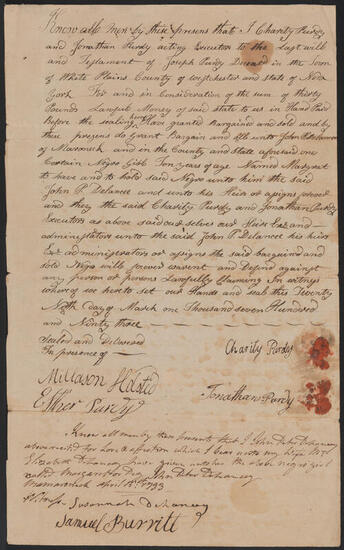 Know all men by these presents that I Charity Purdy
and Jonathan Purdy acting Executors to the Last will
and Testament of Joseph Purdy Deceasd in the Town
of White Plains County of Westchester and state of New
York For and in Consideration of the sum of thirty
Pounds Lawfull Money of said state to us in Hand Paid
Before the sealing hereof Have granted bargained and sold and by
these presents do grant Bargain and sell unto John P Delancee
of Mamaroneck and in the County and State aforesaid one
Certain Negro Girl Ten years of age Named Margret
to have and to hold said Negro unto him the said
John P Delancee and unto his Heirs or assigns
and they the said Charity Purdy and Jonathan Purdy
Executors as above said our selves our Heirs Exr and
administrators unto the said John P Delancee his heirs
Exr administrators or assigns the said bargained and
sold Negro will forever warent and Defend against
any Person or Persons Lawfully Claiming In witness
whereof we have set our Hands and seals this Twenty
day of March one Thousand seven Hundred
and Ninty three
Sealed and Delivered
In presence of
Charity Purdy
Jonathan Purdy
Esther Purdy
Know all men by these presents that I John Peter Delancey
for Love & affection which I bear unto my Wife
Elizabeth Delancey have given unto her the above negro girl
John Peter Delancey
Mamaroneck April 1793
Witness
Susannah Delancey
Samuel Burritt